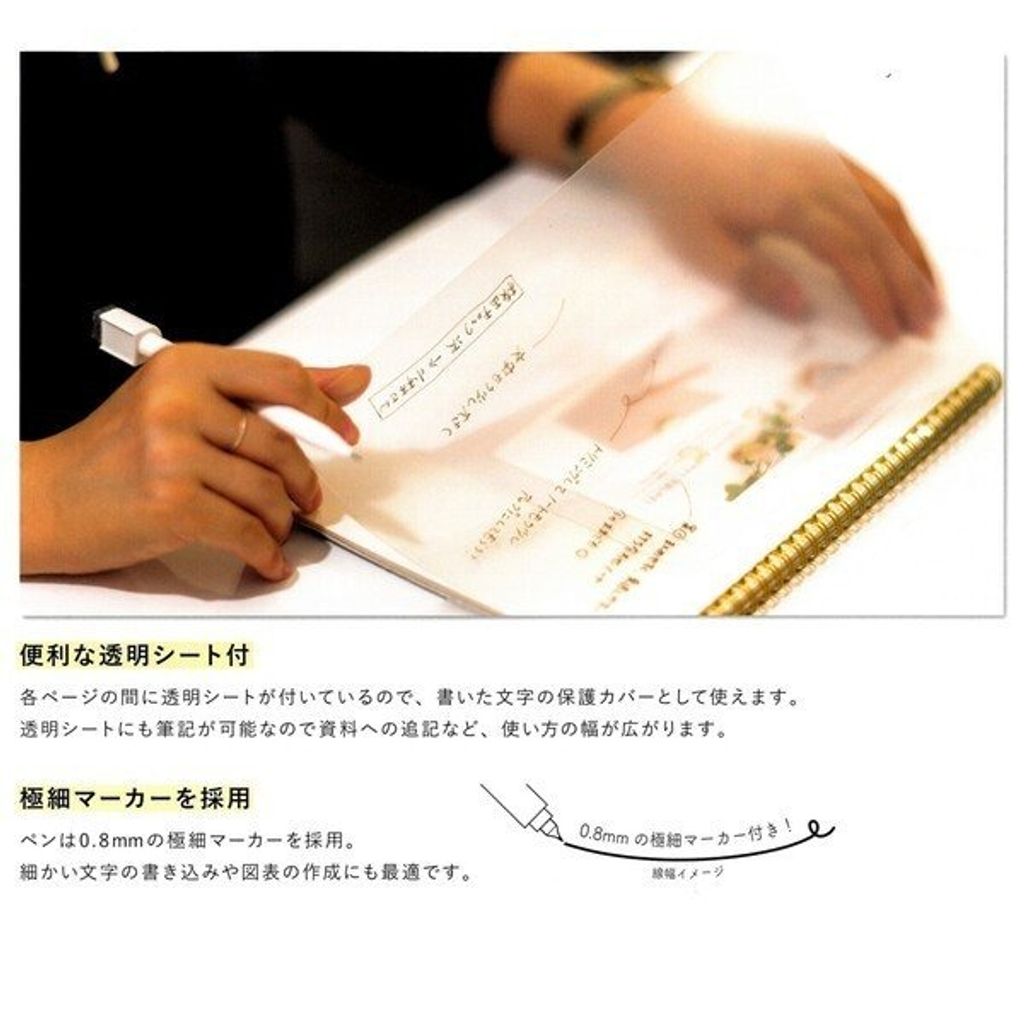 校正チェック済 → 小林さん
文字もう少し大きく
便利な透明シート付
各ページの間に透明シートが付いているので、書いた文字の保護カバーとして使えます。
透明シートにも筆記が可能なので資料への追記など、使い方の幅が広がります。
極細マーカーを採用
ペンは0.8mmの極細マーカーを採用。
細かい文字の書き込みや図表の作成にも最適です。
0.8mm の極細マーカー付き！
線幅イメージ